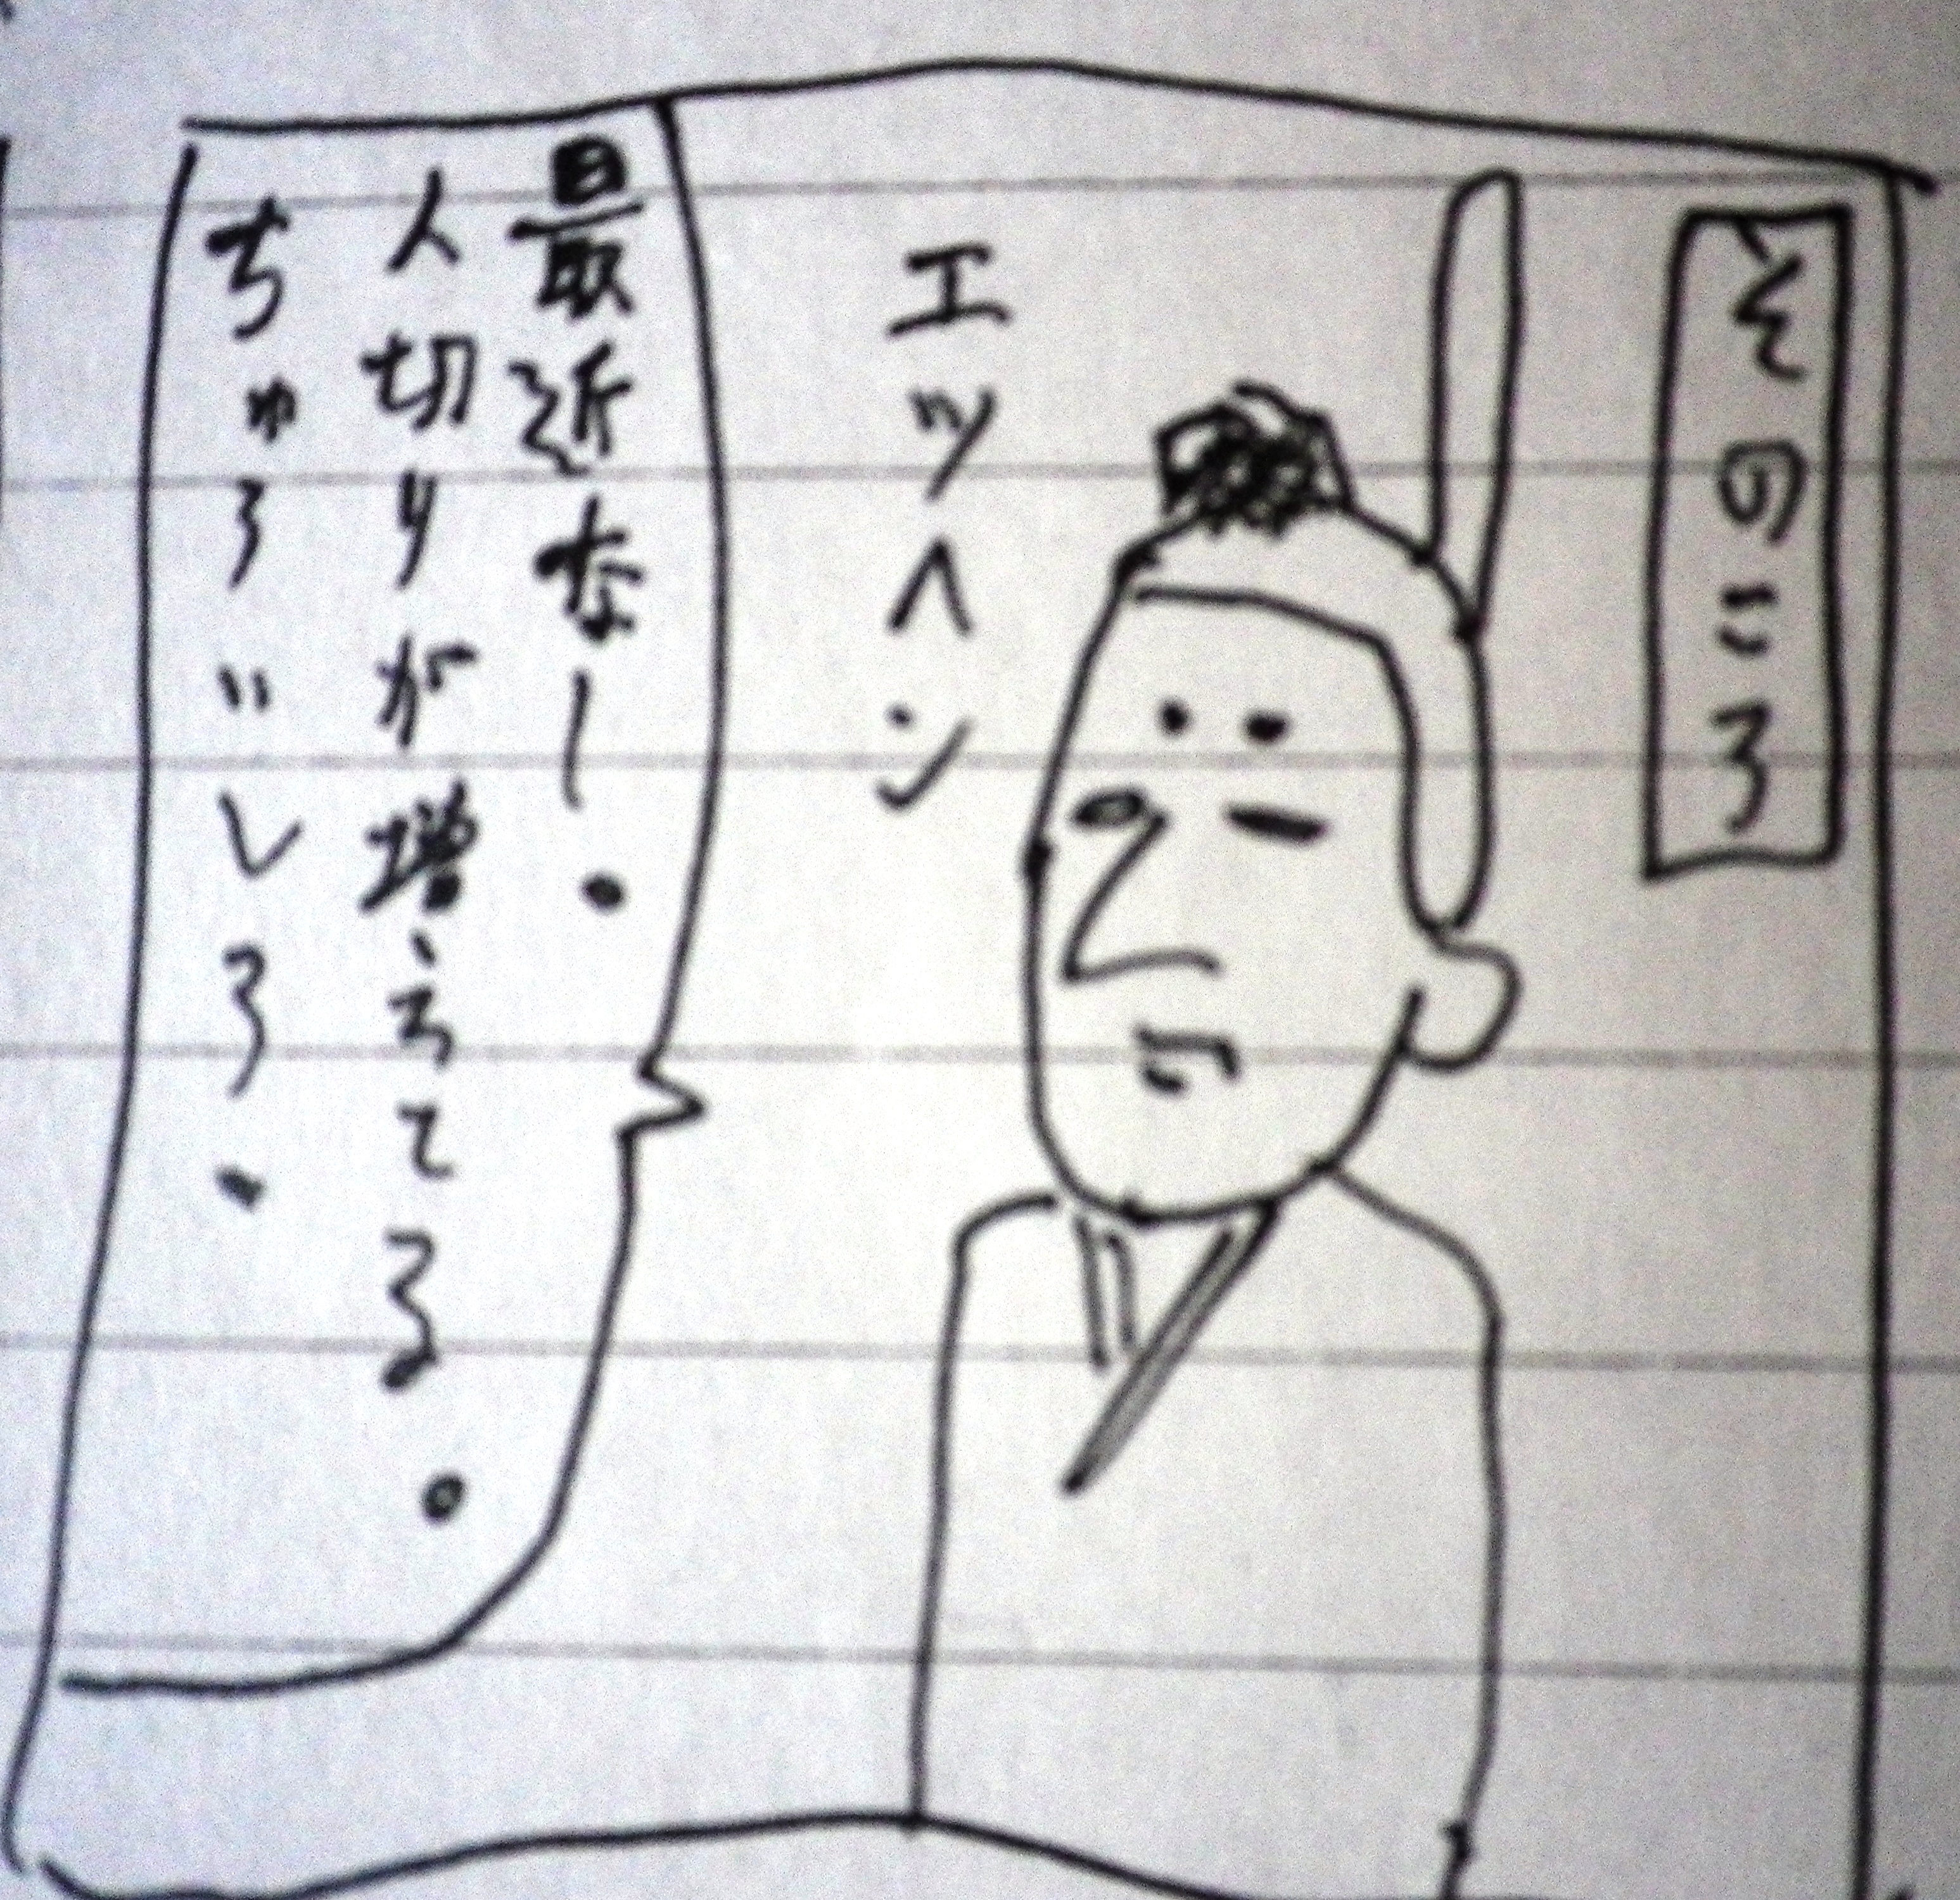 そのころ
エッヘン
最近なー・
人切りが増えてる。
ちゅういしろ・